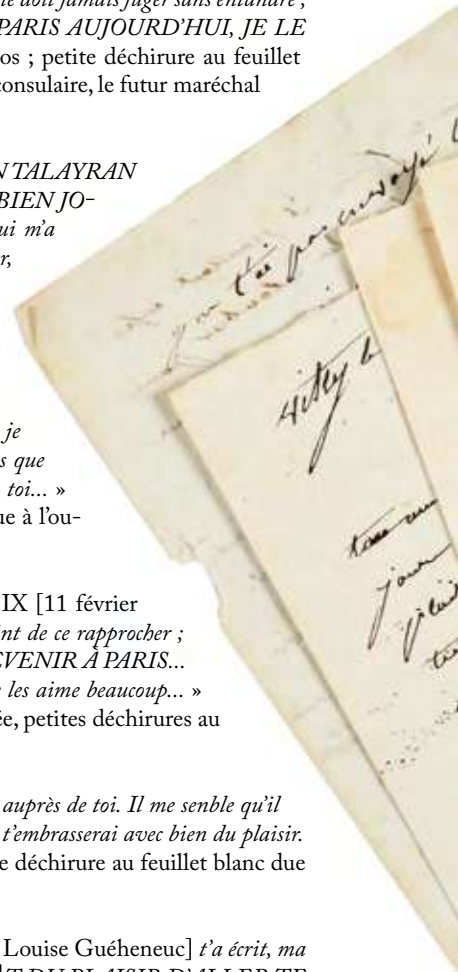 doit jamais juger sans entandre ;
PARIS AUJOURD'HUI, JE LE
os ; petite déchirure au feuillet
consulaire, le futur maréchal
N TALAYRAN
BIEN JO-
ui m'a
r,
je
s que
toi... »
ue à l'ou-
IX [11 février
nt de ce rapprocher ;
EVENIR À PARIS...
les aime beaucoup... »
ée, petites déchirures au
auprès de toi. Il me senble qu'il
t'embrasserai avec bien du plaisir.
e déchirure au feuillet blanc due
Louise Guéheneuc] t'a écrit, ma
T DU PLAISIR D'ALLER TE
t'ai pas envoyé
vitry le